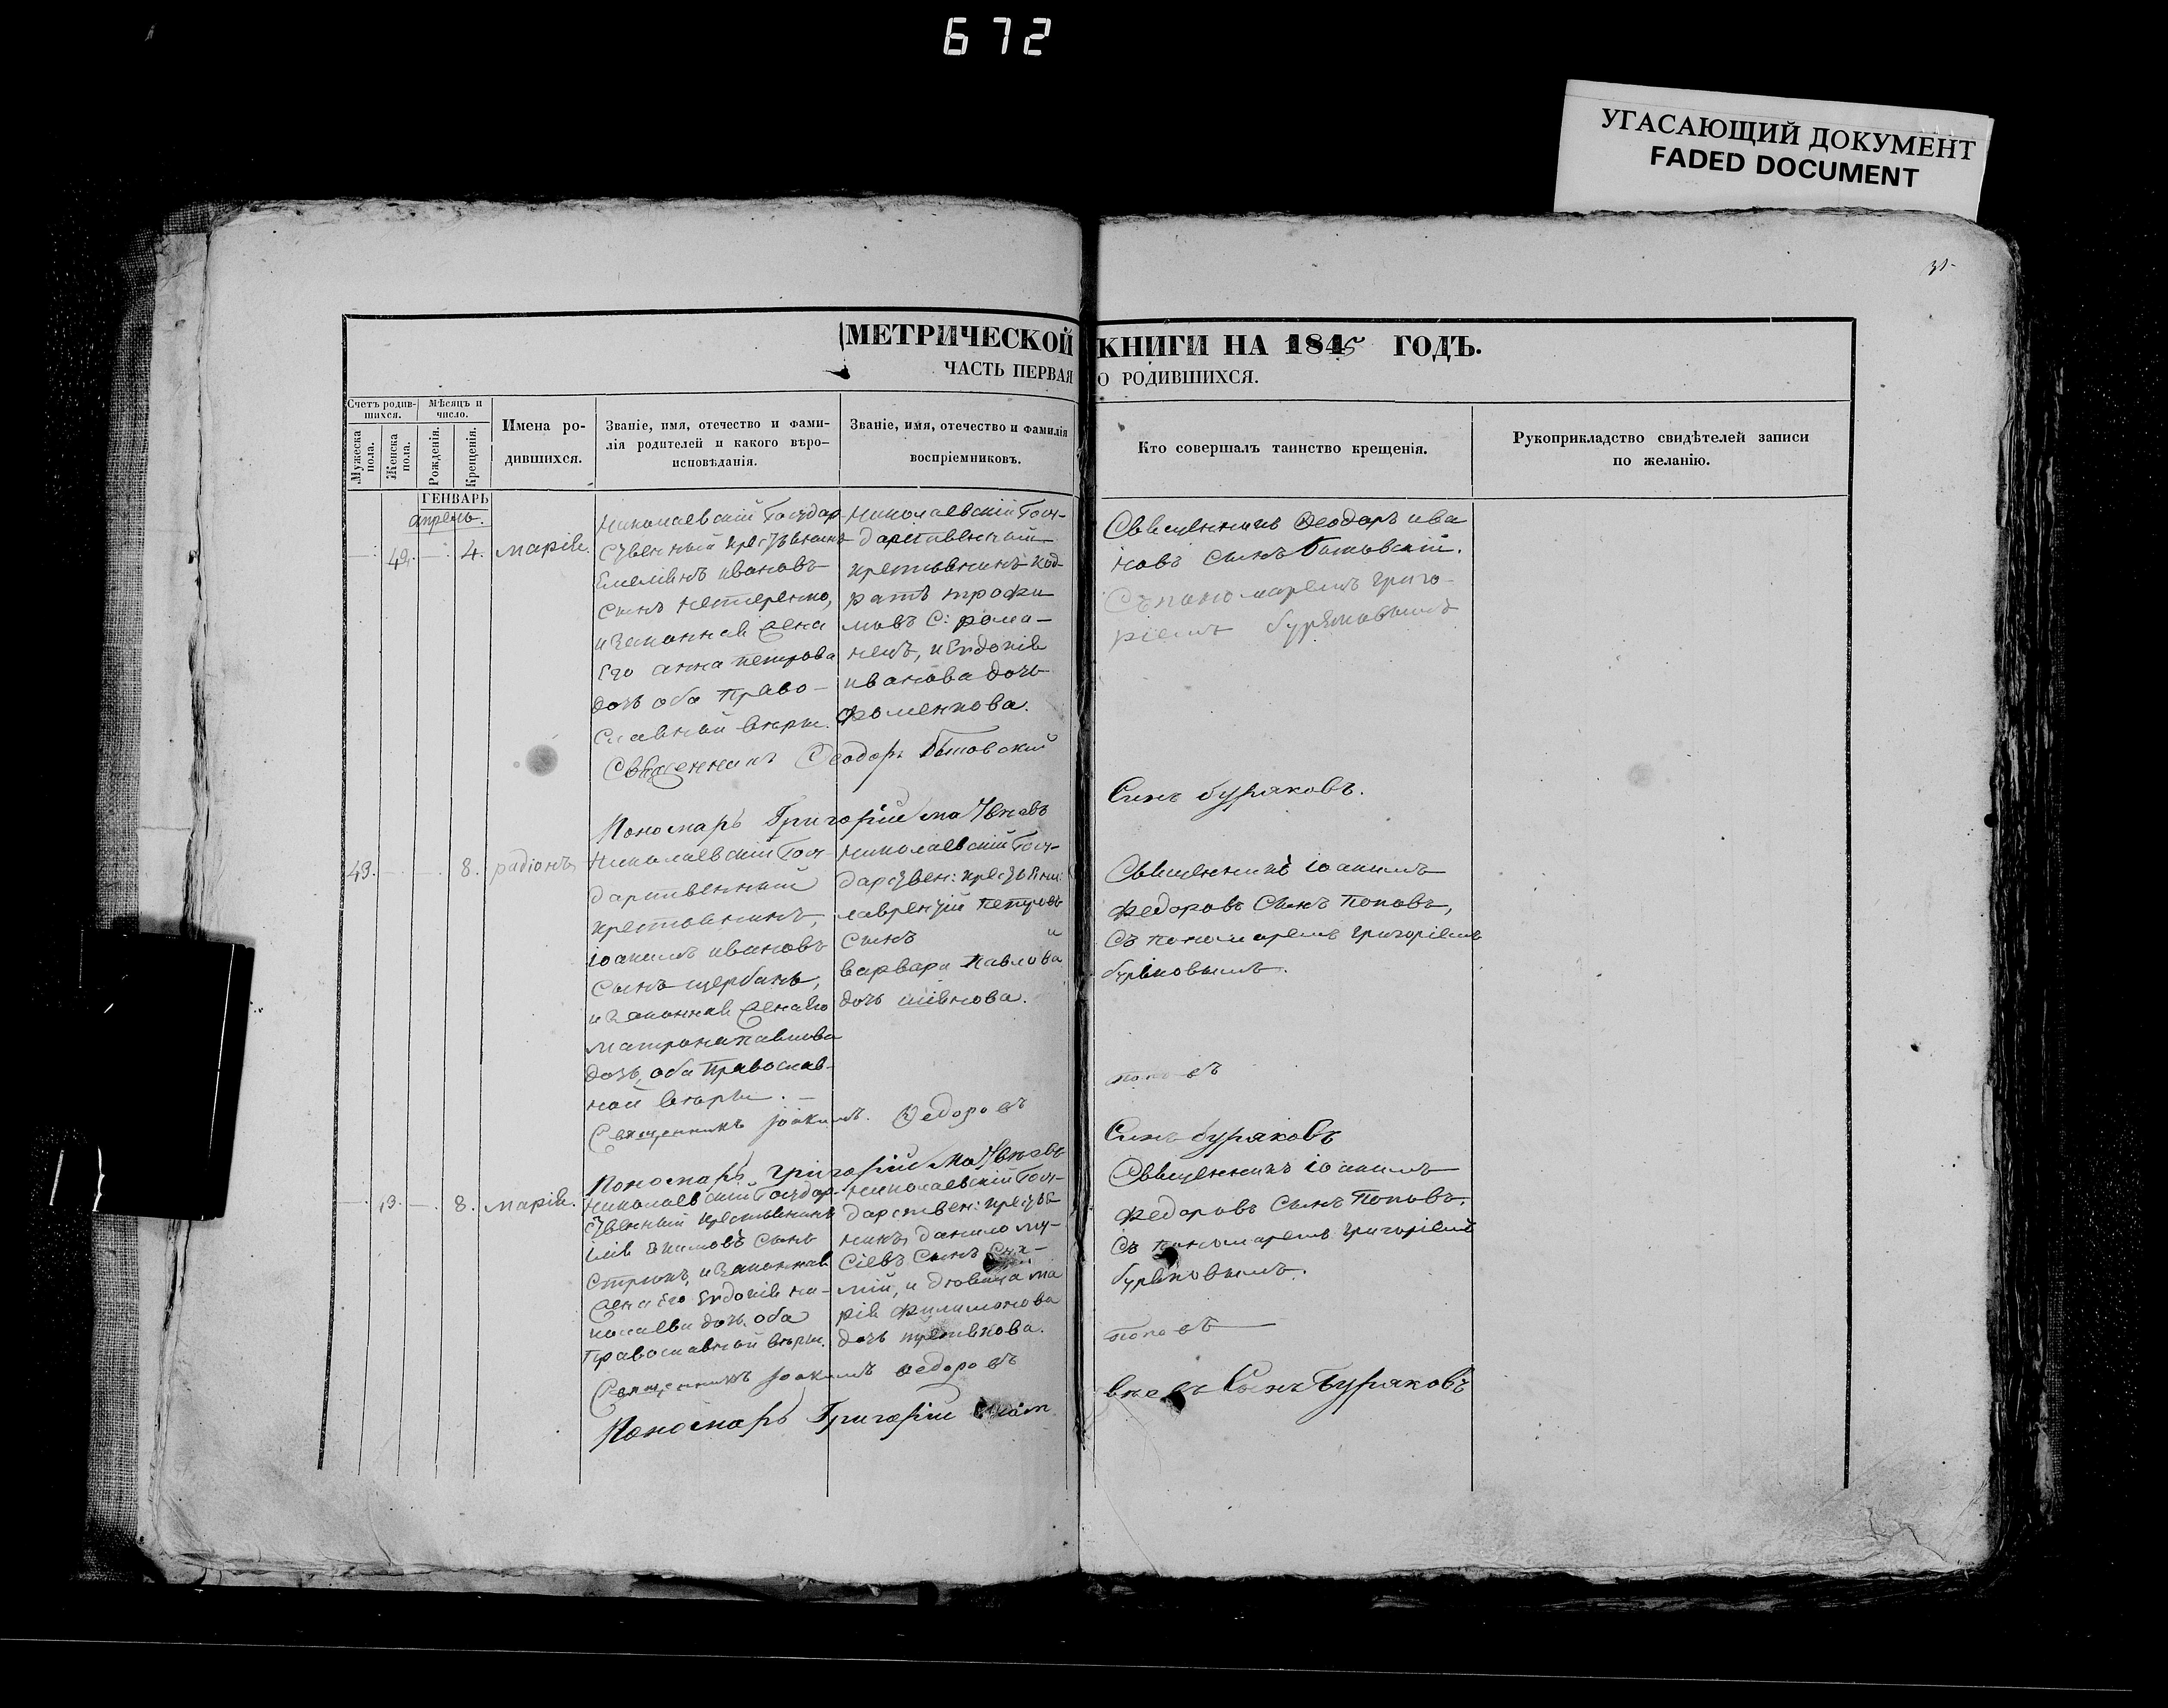 672
УГАСАЮЩИЙ ДОКУМЕНТ
FADED DOCUMENT
МЕТРИЧЕСКОЙ КНИГИ НА 1845 ГОДЪ.
ЧАСТЬ ПЕРВАЯ О РОДИВШИХСЯ.
Счетъ родив-
шихся.
Мужеска
пола.
Женска
пола.
Мѣсяцъ и
число.
Рожденія.
Крещенія.
Имена ро-
дившихся.
Званіе, имя, отечество и фами-
лія родителей и какого вѣро-
исповѣданія.
Званіе, имя, отечество и фамилія
воспріемниковъ.
Кто совершалъ таинство крещенія.
Рукоприкладство свидѣтелей записи
по желанію.
ГЕНВАРЬ
апрель.
4. марія.
Николаевскій Государ-
ственный крестьянинъ
Емеліянъ ивановъ
сынъ нестеренко,
и законная жена
Его анна петрова
дочь оба Право-
славной вѣры.
Николаевскій Госу-
дарственный
крестьянинъ код-
ратъ трофи
мовъ с: рома-
нецъ, и Евдокія
иванова дочь
Фоменкова.
Священникъ Ѳеодоръ ива
новъ сынъ Бытовскій.
Съ пономаремъ григо-
ріемъ буряковымъ
Священникъ Ѳеодоръ Бытовскій
Пономарь Григорій Матвѣевъ Сынъ буряковъ.
43. 8. радіонъ
Николаевскій Госу-
дарственный
крестьянинъ,
іоакимъ ивановъ
сынъ щербакъ,
и законная жена его
матрона павлова
дочь, оба Православ-
ной вѣры.
Николаевскій Госу-
дарствен: крестьянин:
лаврентій петровъ
сынъ и
варвара Павлова
дочь
Священникъ іоакимъ
Федоровъ Сынъ Поповъ,
съ пономаремъ григоріемъ
буряковымъ.
Священникъ іоакимъ Ѳедоровъ поповъ
Пономарь григорій Матвѣевъ Сынъ буряковъ
8. марія.
Николаевскій Государ-
ственный крестьянинъ
илія екимовъ сынъ
и законная
жена его Евдокія ни-
колаева дочь оба
Православной вѣры.
Николаевскій Госу-
дарствен: крестья-
нинъ данило му-
сіевъ сынъ
и дѣвица ма
рія филимонова
дочь
Священникъ іоакимъ
Федоровъ Сынъ Поповъ,
съ пономаремъ григоріемъ
буряковымъ.
Священникъ іоакимъ Ѳедоровъ поповъ
Пономарь Григорій Мат вѣевъ Сынъ Буряковъ